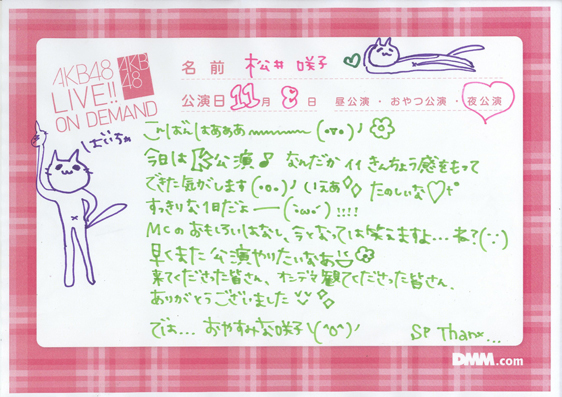 AKB48
LIVE!!
ON DEMAND
AKB
48
名前 松井咲子
公演日 11月8日 昼公演・おやつ公演・夜公演
ばいちゃ
こんばんはあああ (・▽・)
今日はK公演♪ なんだかイイきんちょう感をもって
できた気がします(・o・)ノ いえあ たのしいな♡
すっきりな1日だよー(・ω・´)!!!!
MCのおもしろいはなし、今となっては笑えますよ…ね?(∵)
早くまた公演やりたいなあ
来てくださった皆さん、オンデマ観てくださった皆さん、
ありがとうございました
では… おやすみな咲子\(^o^)ノ
SP Thanx...
DMM.com